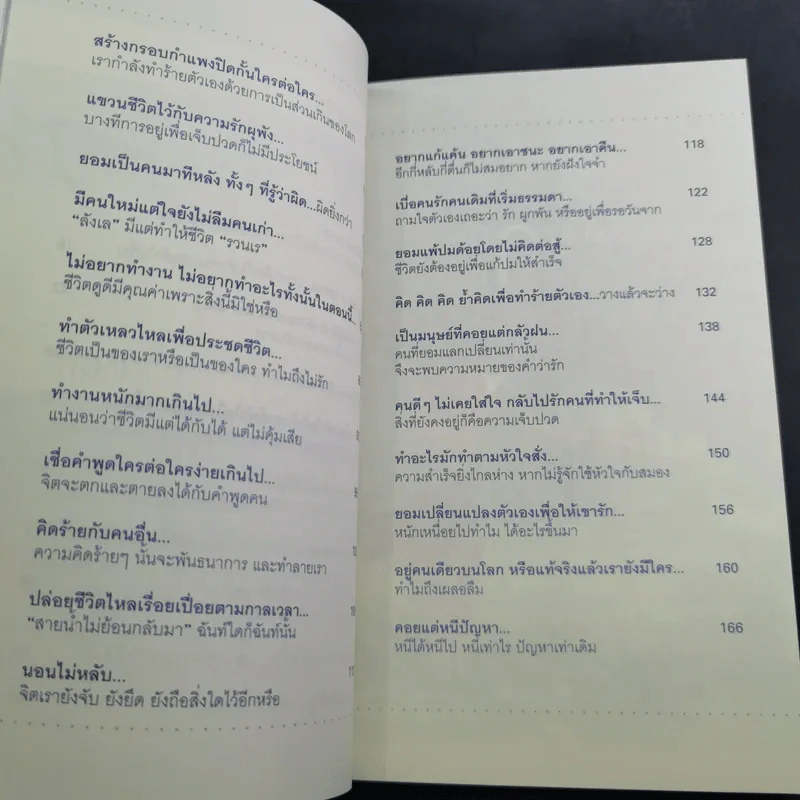 สร้างกรอบกำแพงปิดกั้นใครต่อใคร...
เรากำลังทำร้ายตัวเองด้วยการเป็นส่วนเกินของโลก
แขวนชีวิตไว้กับความรักผุพัง...
บางทีการอยู่เพื่อเจ็บปวดก็ไม่มีประโยชน์
ยอมเป็นคนมาทีหลัง ทั้งๆ ที่รู้ว่าผิด...ผิดยิ่งกว่า
มีคนใหม่แต่ใจยังไม่ลืมคนเก่า...
“ลังเล” มีแต่ทำให้ชีวิต “รวนเร”
ไม่อยากทำงาน ไม่อยากทำอะไรทั้งนั้นในตอนนี้...
ชีวิตดูดีมีคุณค่าเพราะสิ่งนี้มิใช่หรือ
ทำตัวเหลวไหลเพื่อประชดชีวิต...
ชีวิตเป็นของเราหรือเป็นของใคร ทำไมถึงไม่รัก
ทำงานหนักมากเกินไป...
แน่นอนว่าชีวิตมีแต่ได้กับได้ แต่ไม่คุ้มเสีย
เชื่อคำพูดใครต่อใครง่ายเกินไป...
จิตจะตกและตายลงได้กับคำพูดคน
คิดร้ายกับคนอื่น...
ความคิดร้ายๆ นั้นจะพันธนาการ และทำลายเรา
ปล่อยชีวิตไหลเรื่อยเปื่อยตามกาลเวลา...
“สายน้ำไม่ย้อนกลับมา” ฉันท์ใดก็ฉันท์นั้น
นอนไม่หลับ...
จิตเรายังจับ ยังยึด ยังถือสิ่งใดไว้อีกหรือ
อยากแก้แค้น อยากเอาชนะ อยากเอาคืน... 118
อีกกี่หลับกี่ตื่นก็ไม่สมอยาก หากยังฝังใจจำ
เบื่อคนรักคนเดิมที่เริ่มธรรมดา... 122
ถามใจตัวเองเถอะว่า รัก ผูกพัน หรืออยู่เพื่อรอวันจาก
ยอมแพ้ปมด้อยโดยไม่คิดต่อสู้... 128
ชีวิตยังต้องอยู่เพื่อแก้ปมให้สำเร็จ
คิด คิด คิด ย้ำคิดเพื่อทำร้ายตัวเอง...วางแล้วจะว่าง 132
เป็นมนุษย์ที่คอยแต่กลัวฝน... 138
คนที่ยอมแลกเปลี่ยนเท่านั้น
จึงจะพบความหมายของคำว่ารัก
คนดีๆ ไม่เคยใส่ใจ กลับไปรักคนที่ทำให้เจ็บ... 144
สิ่งที่ยังคงอยู่ก็คือความเจ็บปวด
ทำอะไรมักทำตามหัวใจสั่ง... 150
ความสำเร็จยิ่งไกลห่าง หากไม่รู้จักใช้หัวใจกับสมอง
ยอมเปลี่ยนแปลงตัวเองเพื่อให้เขารัก... 156
หนักเหนื่อยไปทำไม ได้อะไรขึ้นมา
อยู่คนเดียวบนโลก หรือแท้จริงแล้วเรายังมีใคร... 160
ทำไมถึงเผลอลืม
คอยแต่หนีปัญหา... 166
หนีได้หนีไป หนีเท่าไร ปัญหาเท่าเดิม